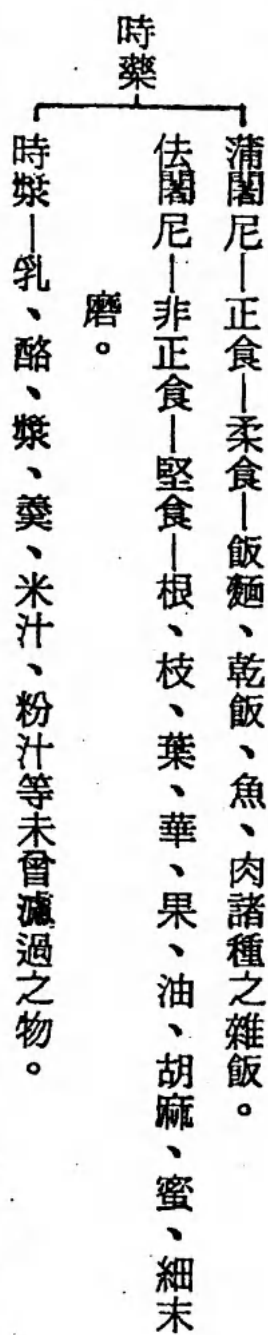 時藥
蒲闍尼—正食—柔食—飯麵、乾飯、魚、肉諸種之雜飯。
佉闍尼—非正食—堅食—根、枝、葉、華、果、油、胡麻、蜜、細末
磨。
時漿—乳、酪、漿、羹、米汁、粉汁等未曾濾過之物。